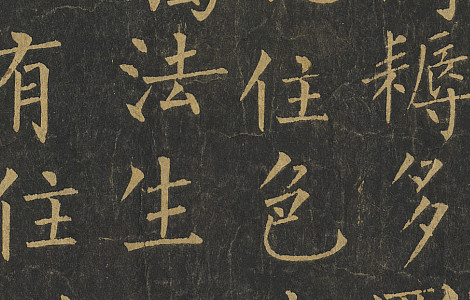 耨多
住色
法生
有住